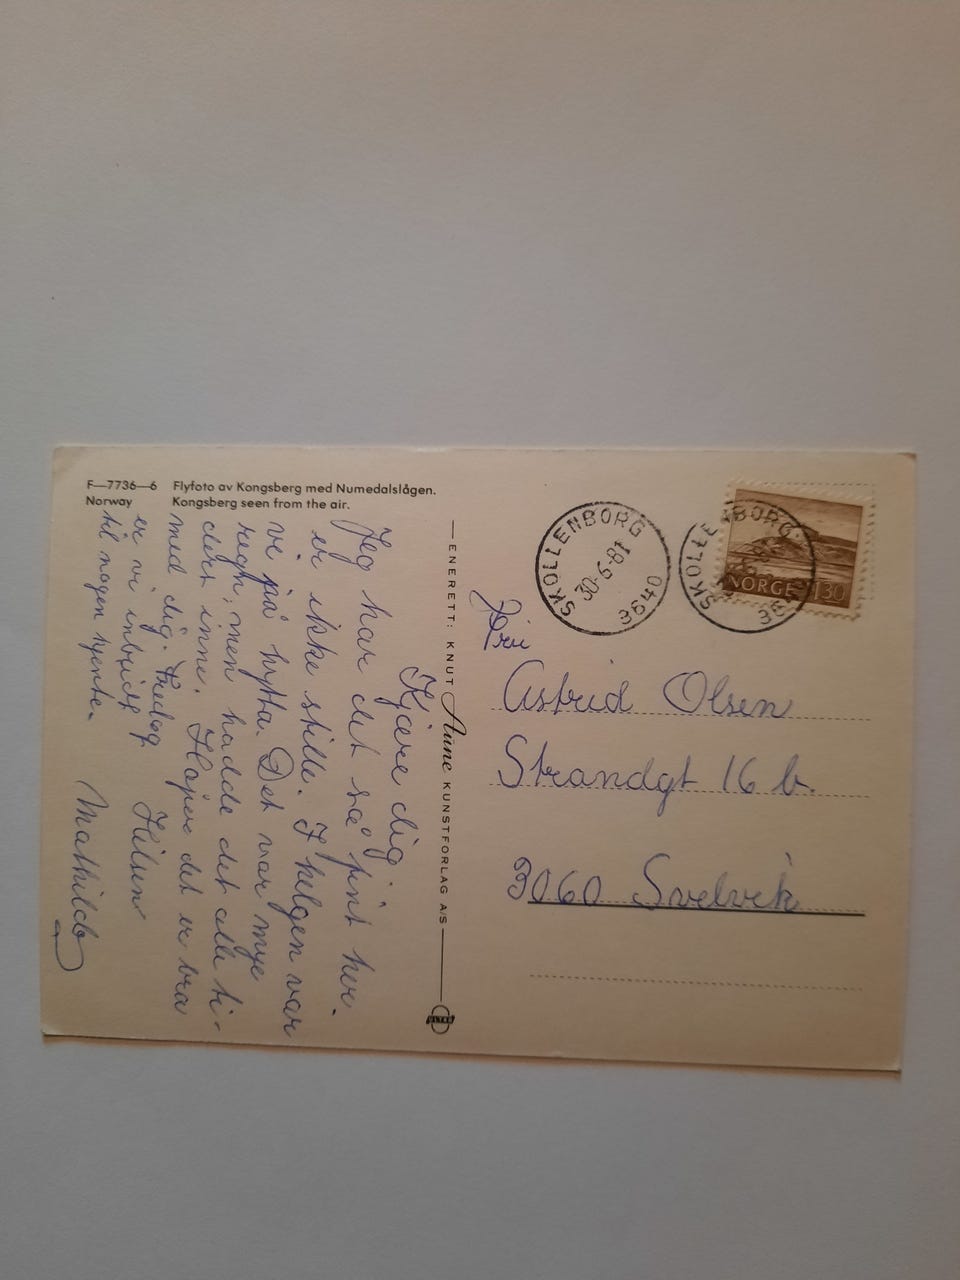 F—7736—6 Flyfoto av Kongsberg med Numedalslågen.
Norway Kongsberg seen from the air.
Kjære dig.
Jeg har det så fint her.
er ikke stille. I helgen var
vi på hytta. Det var mye
regn, men hadde det alle ti-
ders inne. Håper det er bra
med dig. Fredag
er vi inbudt
til nogen kjente.
Hilsen
Mathilde
ENERETT: KNUT Aune KUNSTFORLAG A/S
ULTRA
SKOLLENBORG
30-6-81
3640
SKOLLENBORG
NORGE 130
Fru
Astrid Olsen
Strandgt 16 b.
3060 Svelvik